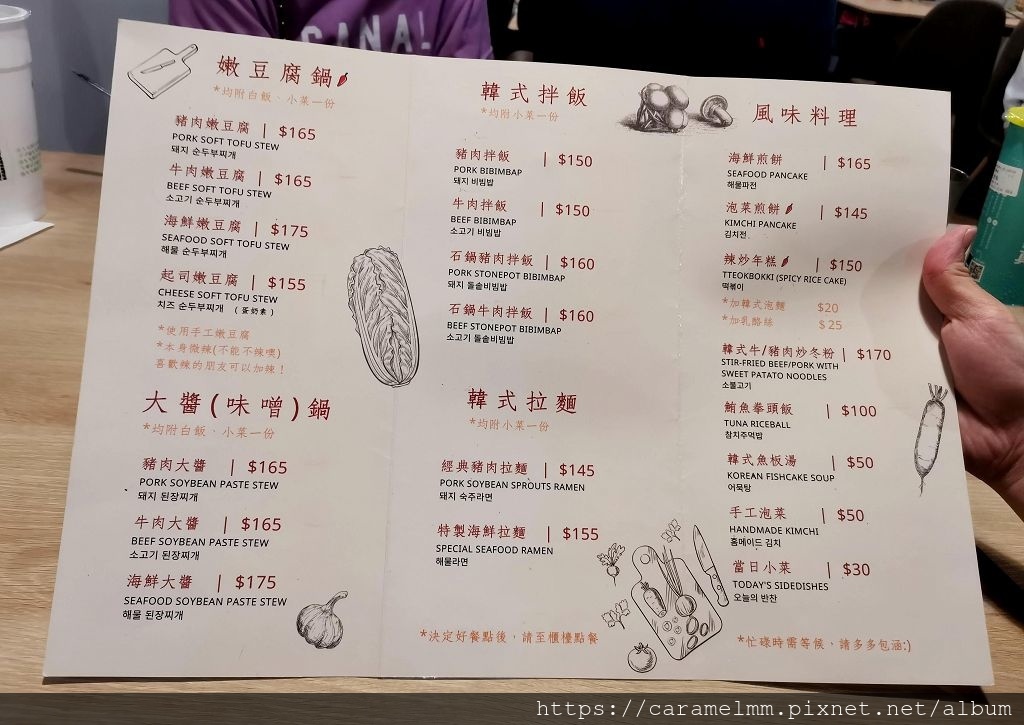 SANA!
嫩豆腐鍋
*均附白飯、小菜一份
豬肉嫩豆腐 | $165
PORK SOFT TOFU STEW
돼지 순두부찌개
牛肉嫩豆腐 | $165
BEEF SOFT TOFU STEW
소고기 순두부찌개
海鮮嫩豆腐 | $175
SEAFOOD SOFT TOFU STEW
해물 순두부찌개
起司嫩豆腐 | $155
CHEESE SOFT TOFU STEW
치즈 순두부찌개 (蛋奶素)
*使用手工嫩豆腐
*本身微辣(不能不辣喔)
喜歡辣的朋友可以加辣!
大醬(味噌)鍋
*均附白飯、小菜一份
豬肉大醬 | $165
PORK SOYBEAN PASTE STEW
돼지 된장찌개
牛肉大醬 | $165
BEEF SOYBEAN PASTE STEW
소고기 된장찌개
海鮮大醬 | $175
SEAFOOD SOYBEAN PASTE STEW
해물 된장찌개
韓式拌飯
*均附小菜一份
豬肉拌飯 | $150
PORK BIBIMBAP
돼지 비빔밥
牛肉拌飯 | $150
BEEF BIBIMBAP
소고기 비빔밥
石鍋豬肉拌飯 | $160
PORK STONEPOT BIBIMBAP
돼지 돌솥비빔밥
石鍋牛肉拌飯 | $160
BEEF STONEPOT BIBIMBAP
소고기 돌솥비빔밥
韓式拉麵
*均附小菜一份
經典豬肉拉麵 | $145
PORK SOYBEAN SPROUTS RAMEN
돼지 숙주라면
特製海鮮拉麵 | $155
SPECIAL SEAFOOD RAMEN
해물라면
*決定好餐點後，請至櫃檯點餐
風味料理
海鮮煎餅 | $165
SEAFOOD PANCAKE
해물파전
泡菜煎餅 | $145
KIMCHI PANCAKE
김치전
辣炒年糕 | $150
TTEOKBOKKI (SPICY RICE CAKE)
떡볶이
*加韓式泡麵 $20
*加乳酪絲 $25
韓式牛/豬肉炒冬粉 | $170
STIR-FRIED BEEF/PORK WITH
SWEET PATATO NOODLES
소불고기
鮪魚拳頭飯 | $100
TUNA RICEBALL
참치주먹밥
韓式魚板湯 | $50
KOREAN FISHCAKE SOUP
어묵탕
手工泡菜 | $50
HANDMADE KIMCHI
홈메이드 김치
當日小菜 | $30
TODAY'S SIDEDISHES
오늘의 반찬
*忙碌時需等候，請多多包涵:)
https://caramelmm.pixnet.net/album